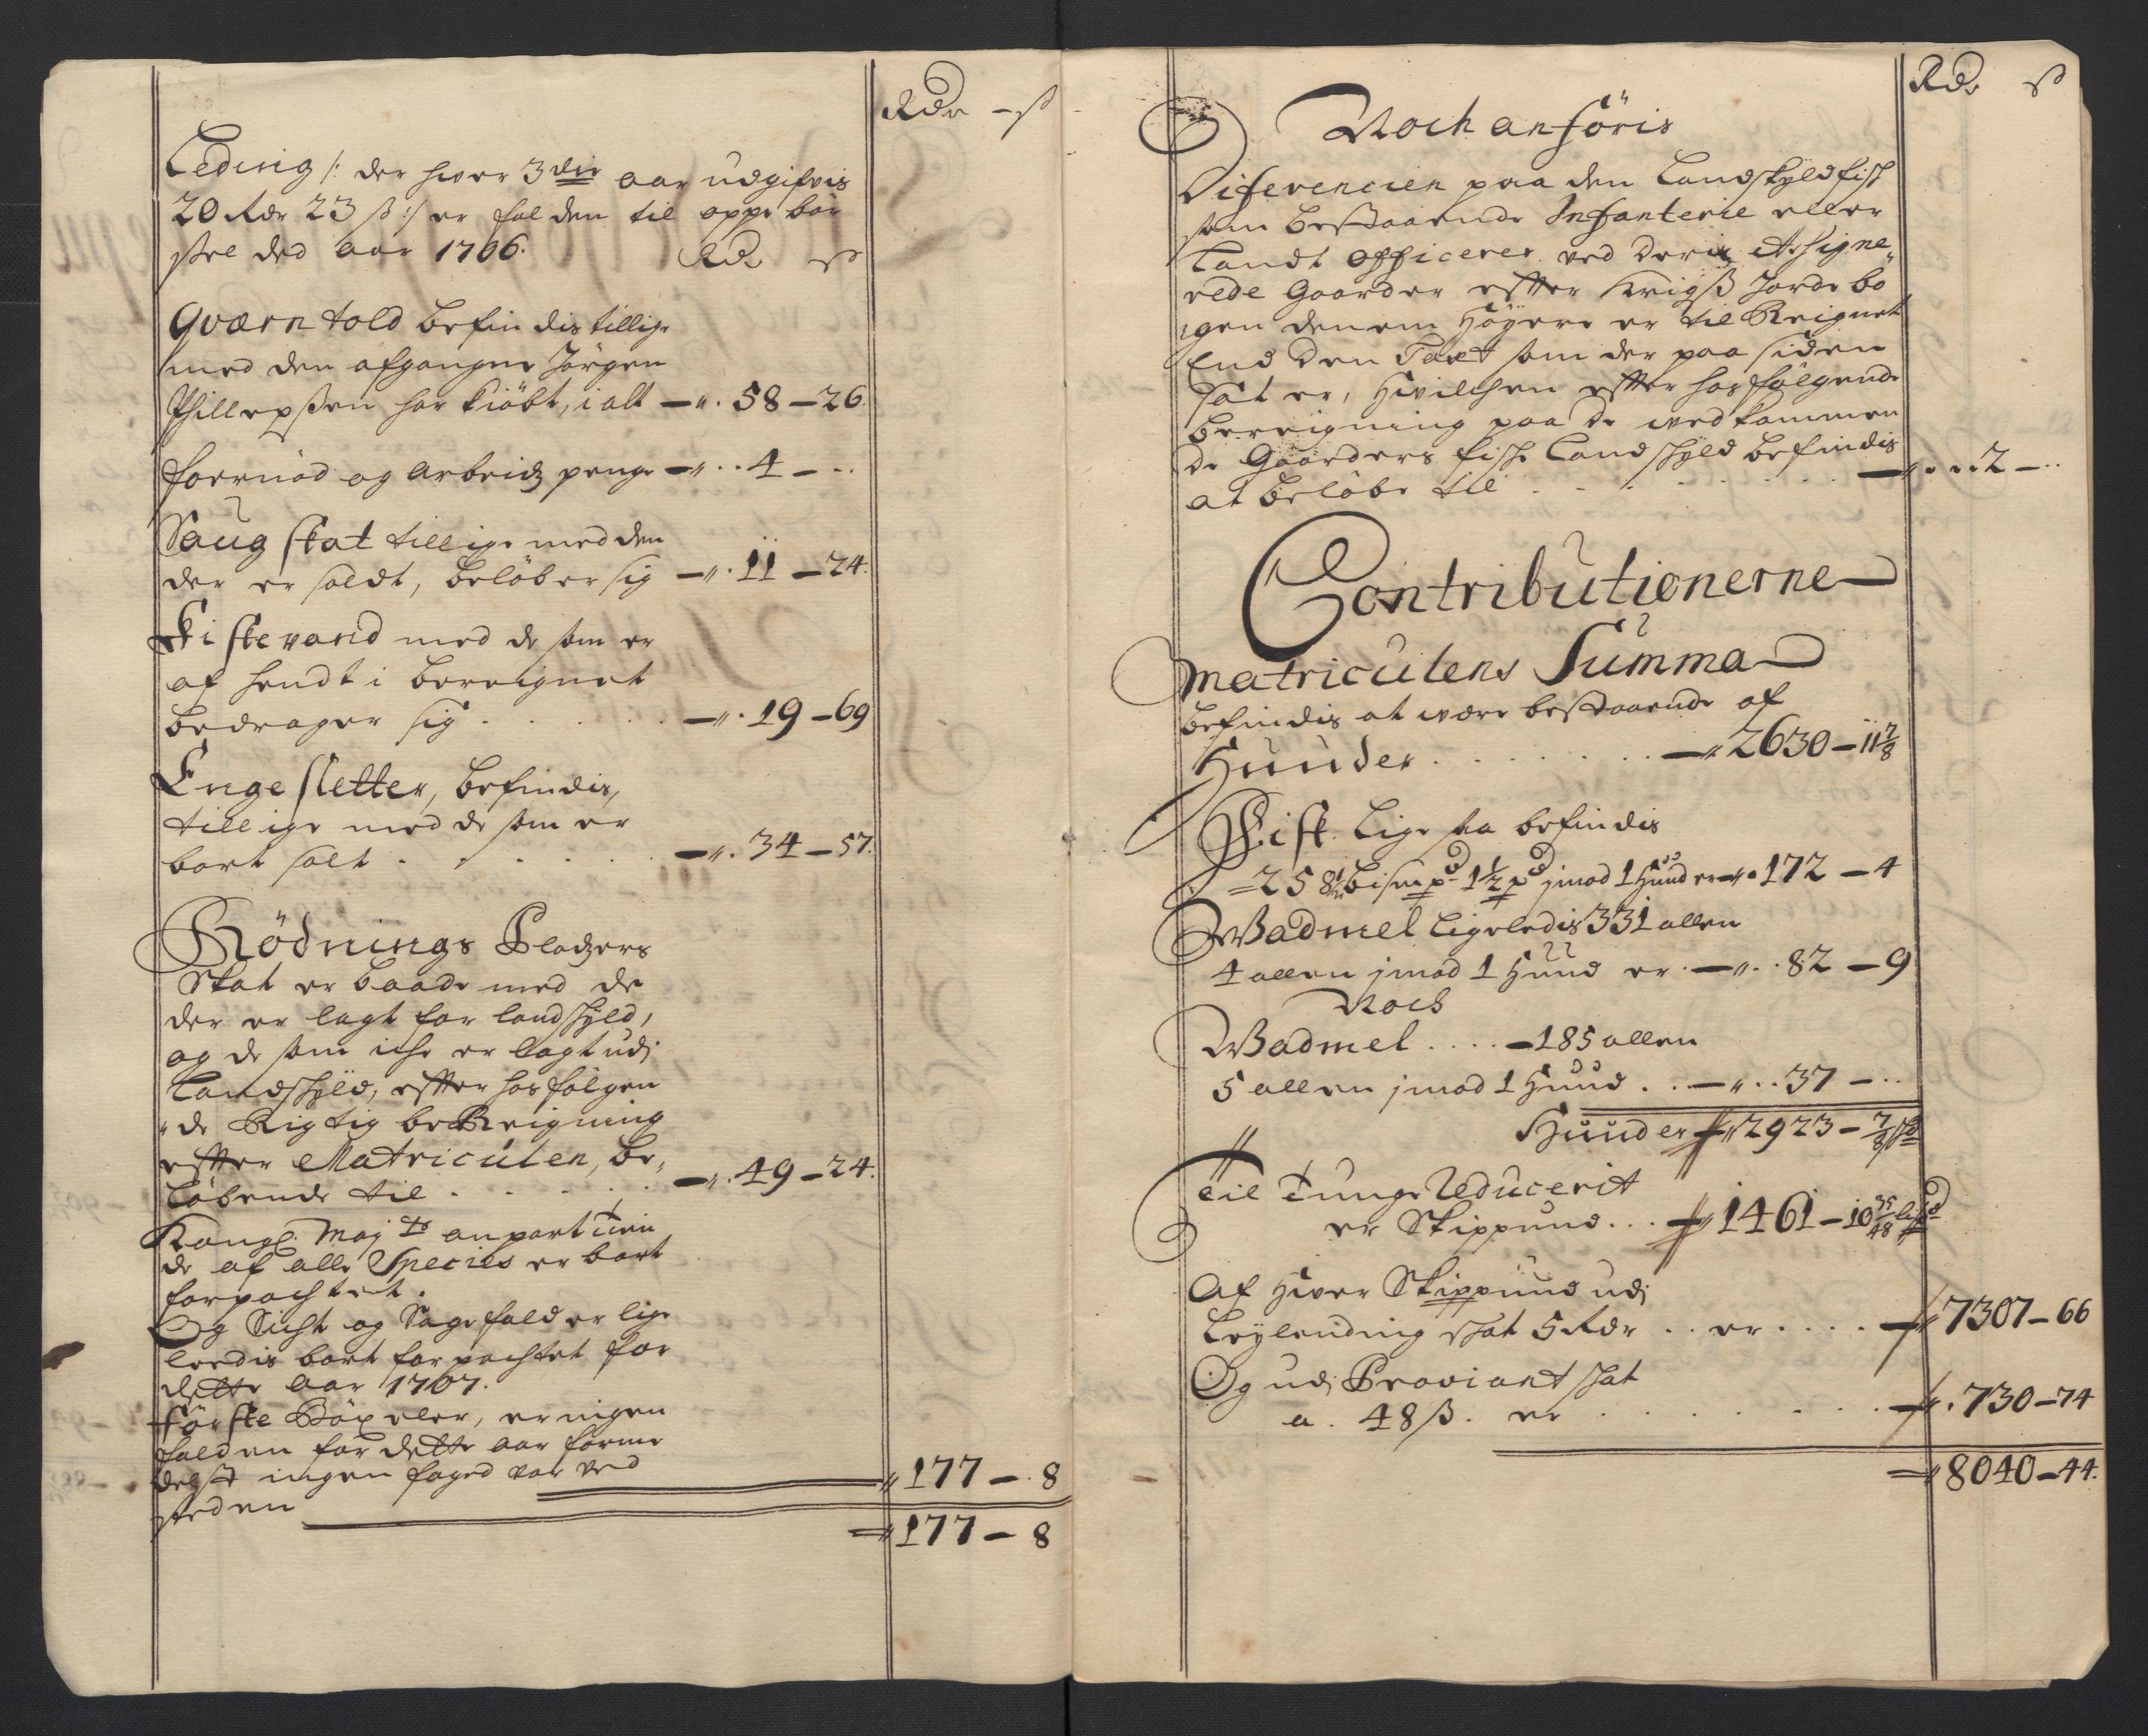 Rdr - ß
Leding /: der hver 3die aar udgifvis
20 Rdr 23 ß :/ er falden til oppebør
sel ded aar 1706. Rdr ß
Qværntold befindis tillige
med den afgangne Jørgen
Phillepsen har kiøbt, i alt — 58 – 26.
foernød og arbeids penge — 4 – ..
Saugskat tillige med den
der er soldt, beløber sig — 11 – 24.
Fiskevand med de som er
af hendt i bereignet
bedrager sig . . . . — 19 – 69
Engesletter, befindis,
tillige med de som er
bort solt . . . . . — 34 – 57.
Rødnings Pladzers
Skat er baade med de
der er lagt for landskyld,
og de som iche er lagt udj
Landskyld, effter hosfølgen
de Rigtig beReigning
effter Matriculen, be,
løbende til . . . . — 49 – 24.
Kongl. Maj ts anpart tien
de af alle Species er bort
forpachtet.
Og Sicht og Sagefald er lige
leedis bort forpachtet for
dette aar 1707.
Første Bøxeler, er ingen
falden for dette aar forme
delst ingen foged var ved
steden
177 – 8
177 – 8
Rdr ß
Noch anføris
Diferencien paa den Landskyldfisk
som bestaaende Infanterie eller
Landt Officerer ved deris Assigne
rede Gaarder effter Krigß Jordebo
gen dennem høyere er til Reignet
End den Taxt som der paa siden
sat er, hvilchen effter hosfølgende
bereigning paa de vedkommen
de Gaarders fiske Landskyld befindis
at beløbe til . . . . . . — 2 – ..
Contributionerne
Matriculens Summa
befindis at være bestaaende af
Hunder . . . . . . — 2630 – 11 7/8
Fisk. Lige saa befindis
258 1/2 bismpd 1 1/2 pd imod 1 Hunder — 172 – 4
Wadmel Ligeledis 331 allen
4 allen imod 1 Hund er — 82 – 9
Noch
Wadmel . . . . – 185 allen
5 allen imod 1 Hund . . — 37 – ..
Hunder 2923 – 7/8
Til Tunge Reducerit
er Skippund . . . 1461 – 10 35/48 lispd
Af hver Skippund udj
Leylending skat 5 Rdr . . er . . . . 7307 – 66
Og udj Proviant skat
a. 48 ß. er . . . . . 730 – 74
8040 – 44.